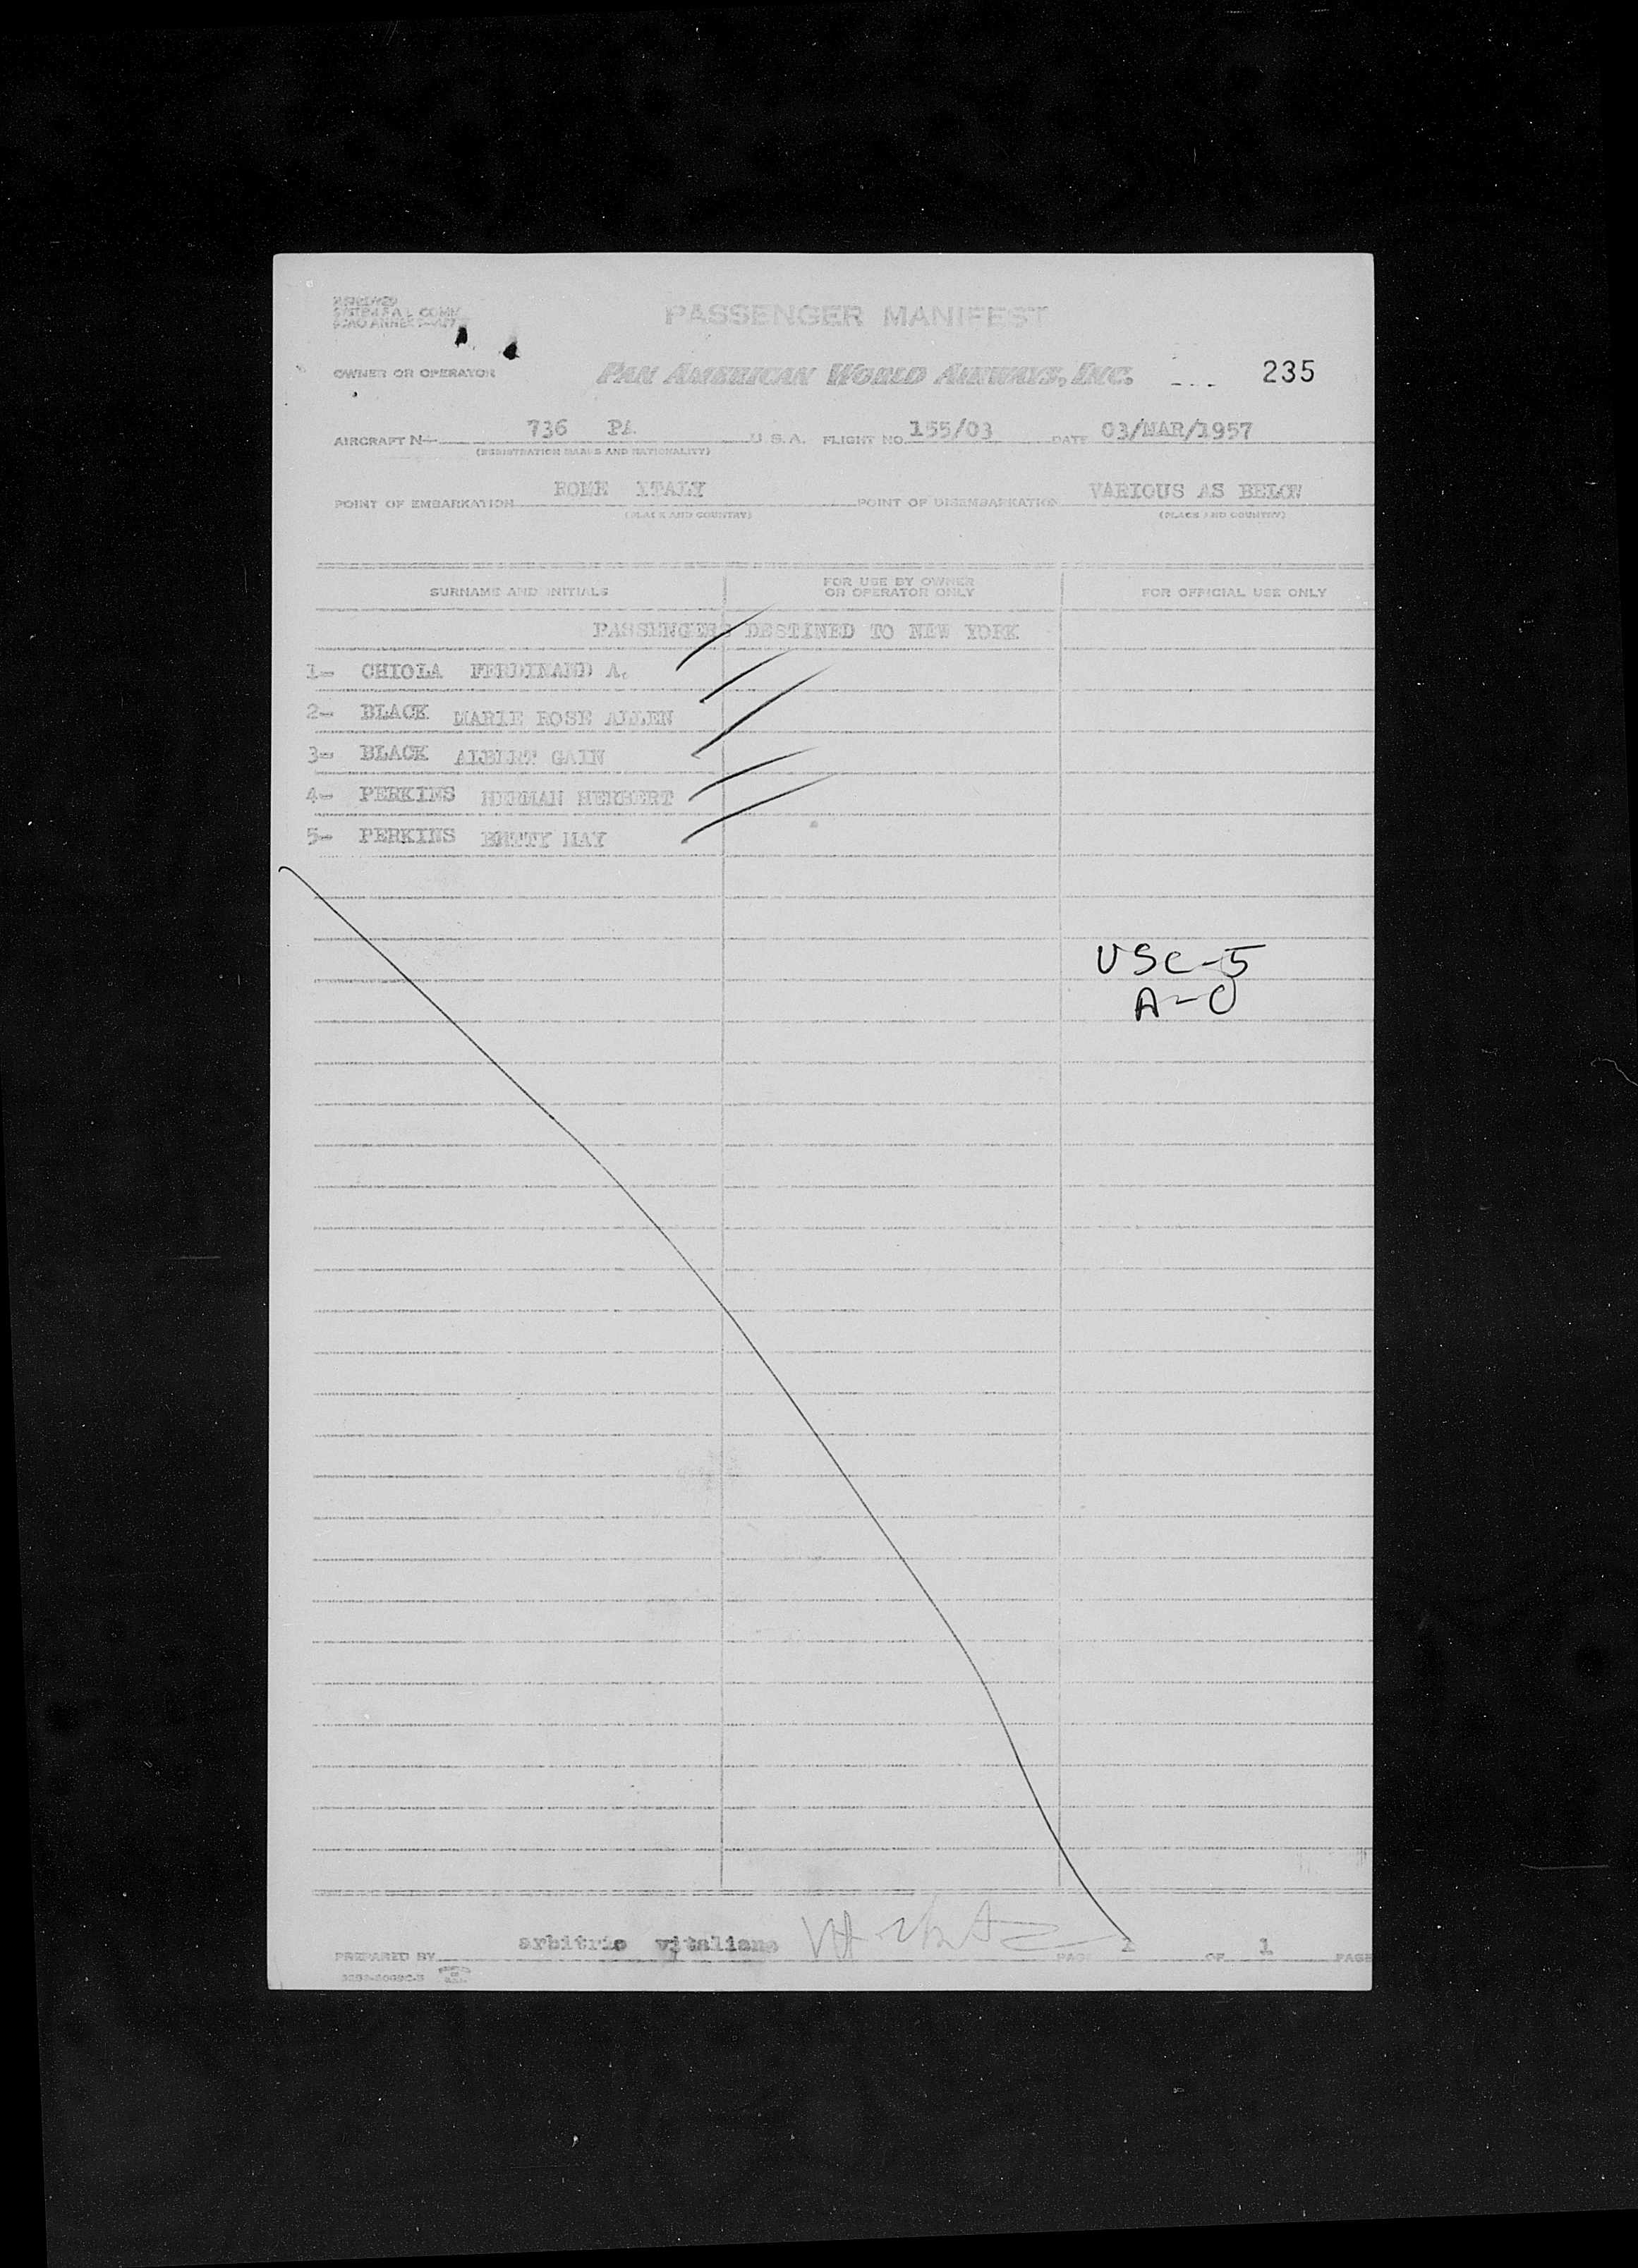 PASSENGER MANIFEST
OWNER OR OPERATOR PAN AMERICAN WORLD AIRWAYS, INC. 235
AIRCRAFT N 736 PA U. S. A. FLIGHT NO. 155/03 DATE 03/MAR/1957
(REGISTRATION MARKS AND NATIONALITY)
POINT OF EMBARKATION ROME ITALY POINT OF DISEMBARKATION VARIOUS AS BELOW
(PLACE AND COUNTRY) (PLACE AND COUNTRY)
SURNAME AND INITIALS FOR USE BY OWNER OR OPERATOR ONLY FOR OFFICIAL USE ONLY
PASSENGERS DESTINED TO NEW YORK
1- CHIOLA FERDINAND A.
2- BLACK MARIE ROSE ALLEN
3- BLACK ALBERT GAIN
4- PERKINS HERMAN HERBERT
5- PERKINS BETTY MAY
USC-5
A-0
PREPARED BY arbitrio vitaliano PAGE 1 OF 1 PAGE